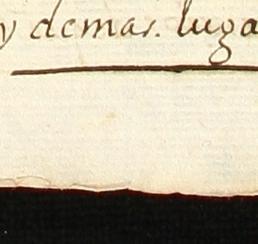 y demas. luga